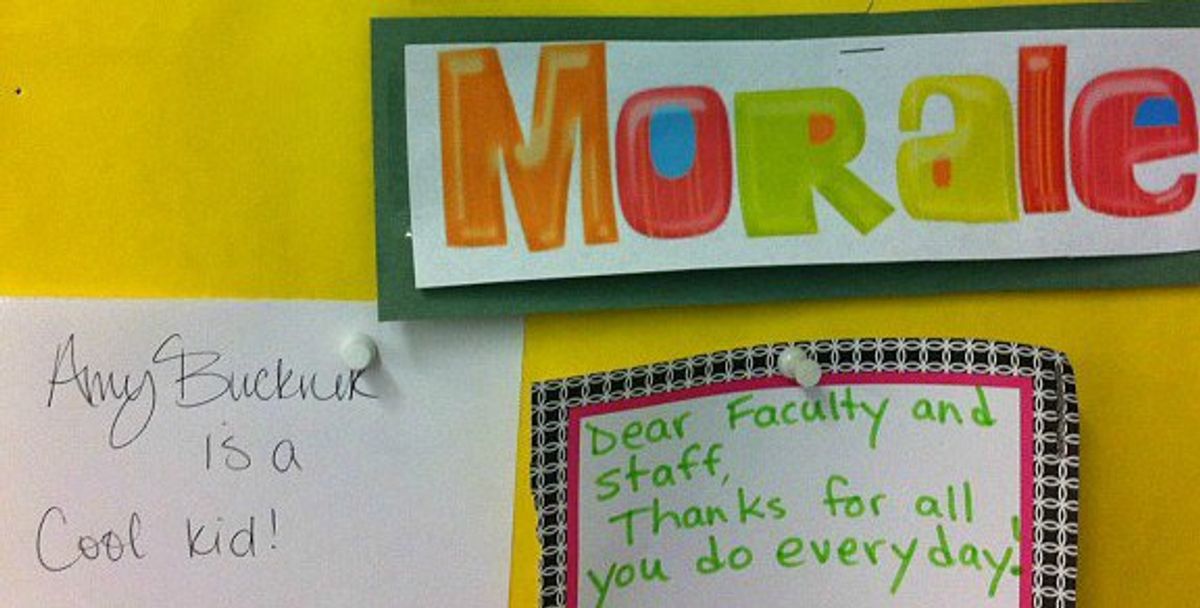 Morale
Amy Buckner
is a
Cool kid!
Dear Faculty and
staff,
Thanks for all
you do everyday!